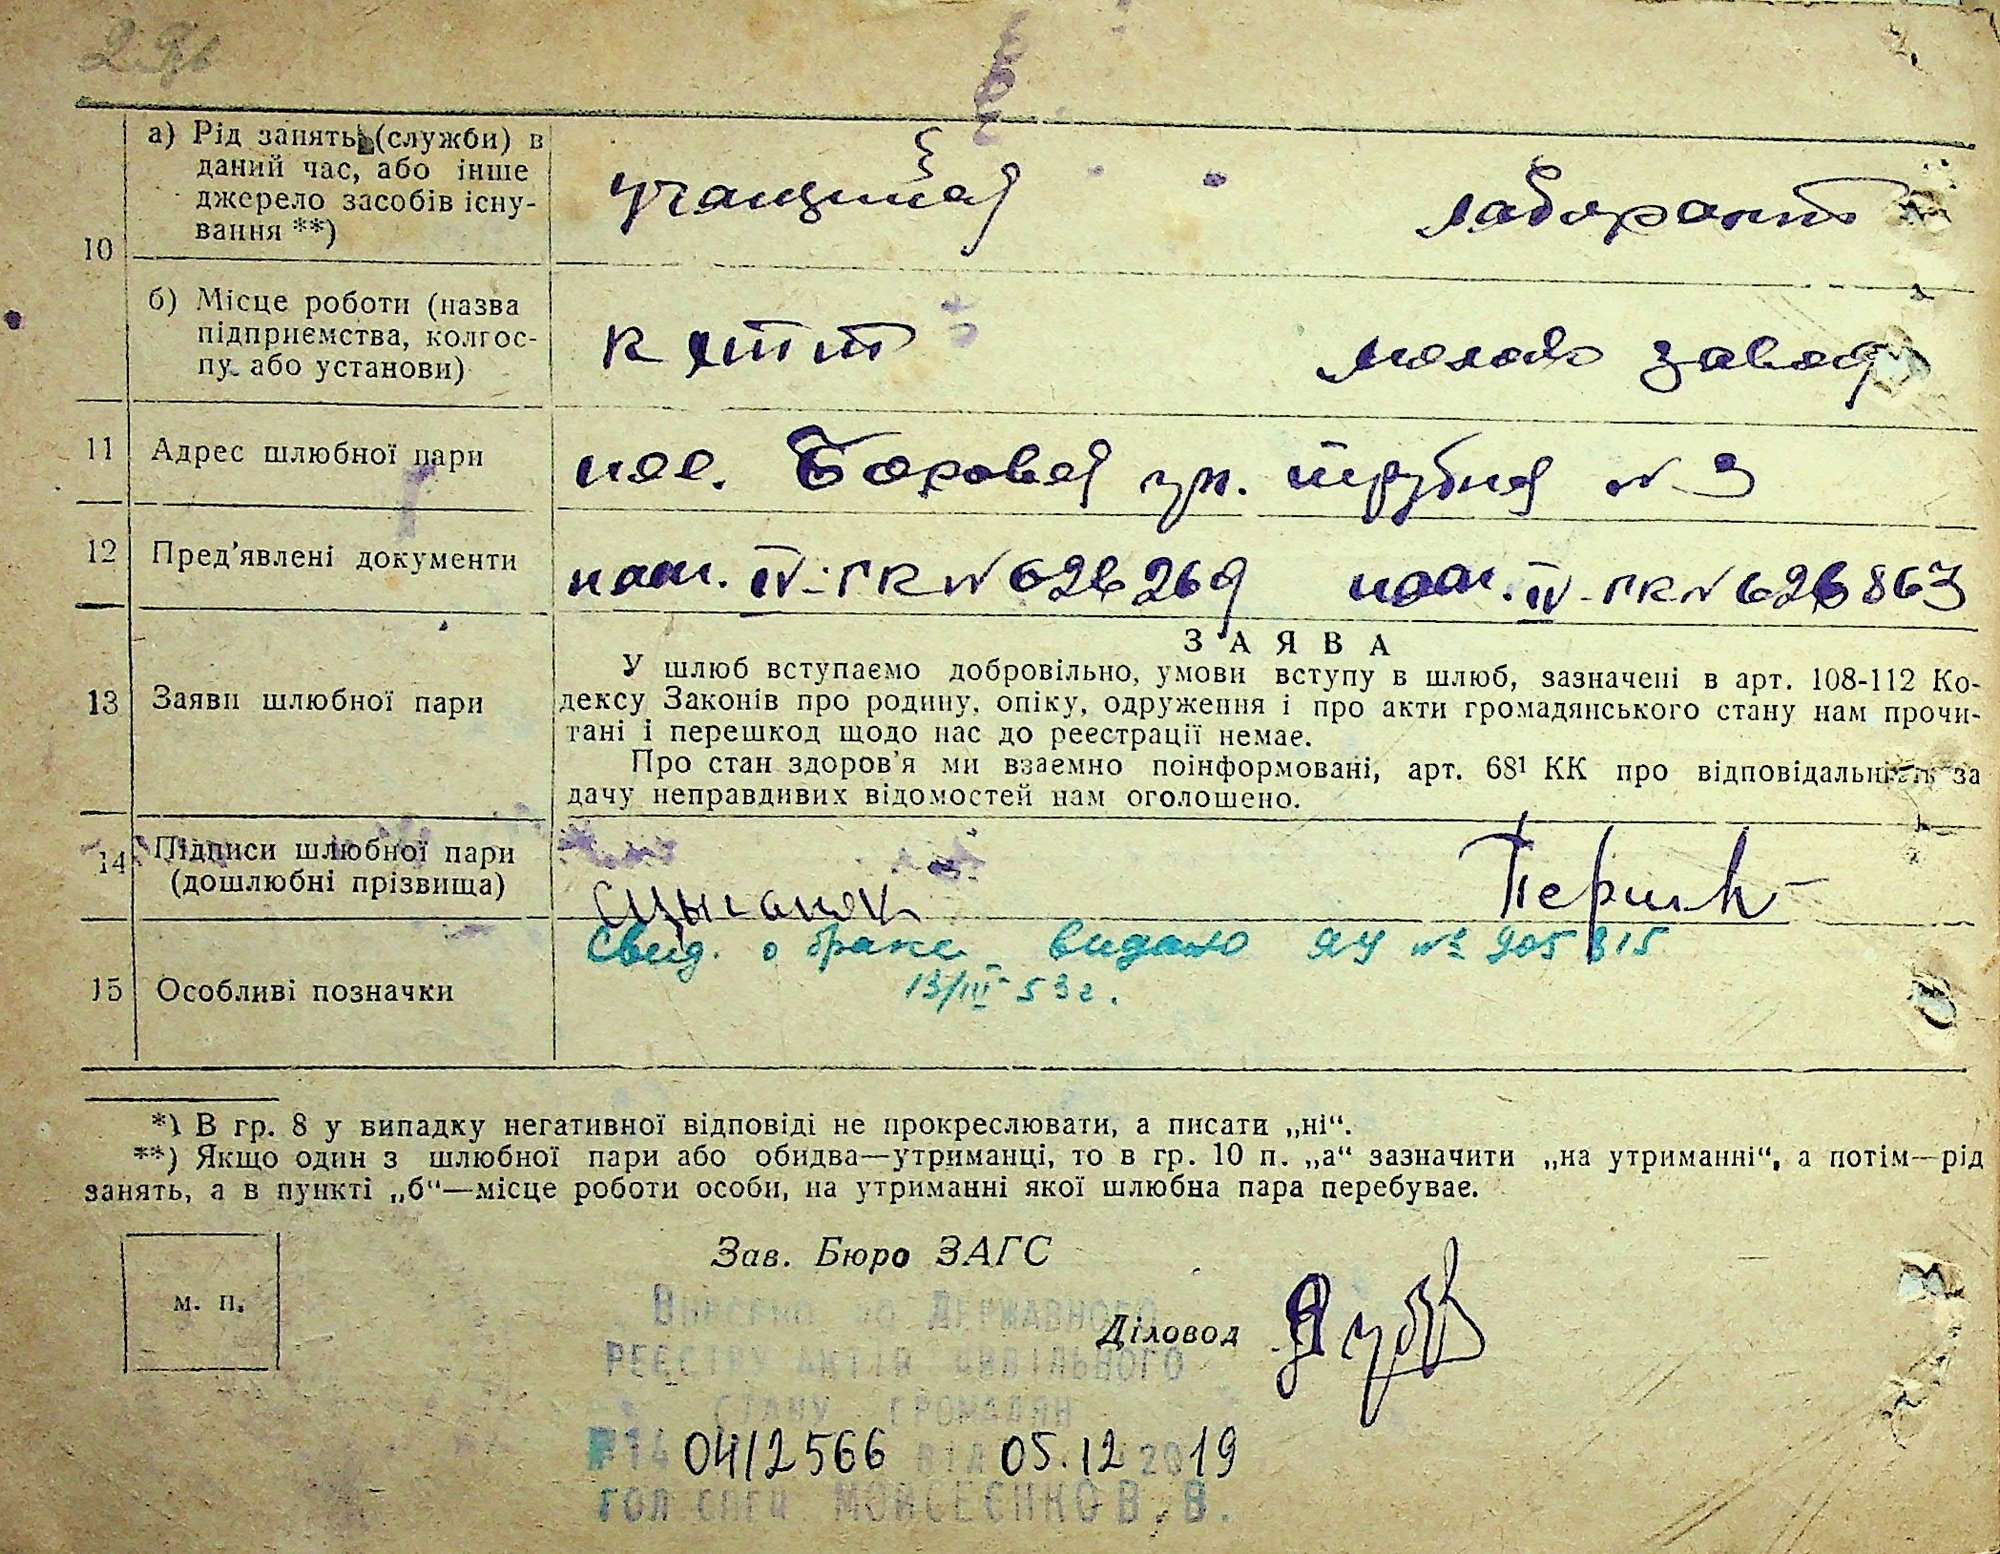 10
а) Рід занять (служби) в
даний час, або інше
джерело засобів існу-
вання **)
учащийся
лаборант
б) Місце роботи (назва
підприємства, колгос-
пу або установи)
завод
11 Адрес шлюбної пари
пос. Боровая ул. Трубная № 3
12 Пред'явлені документи
пасп. IV-ГК № 626269
пасп. IV-ГК № 626863
ЗАЯВА
13 Заяви шлюбної пари
У шлюб вступаємо добровільно, умови вступу в шлюб, зазначені в арт. 108-112 Ко-
дексу Законів про родину, опіку, одруження і про акти громадянського стану нам прочи-
тані і перешкод щодо нас до реєстрації немає.
Про стан здоров'я ми взаємно поінформовані, арт. 68¹ КК про відповідальність за
дачу неправдивих відомостей нам оголошено.
14 Підписи шлюбної пари
(дошлюбні прізвища)
15 Особливі позначки
Свид. о браке видано ЯУ № 905815
13/III-53г.
*) В гр. 8 у випадку негативної відповіді не прокреслювати, а писати „ні“.
**) Якщо один з шлюбної пари або обидва—утриманці, то в гр. 10 п. „а“ зазначити „на утриманні“, а потім—рід
занять, а в пункті „б“—місце роботи особи, на утриманні якої шлюбна пара перебуває.
Зав. Бюро ЗАГС
м. п.
Діловод
Внесено до Державного
реєстру актів цивільного
стану громадян
0412566 від 05.12 2019
гол спец